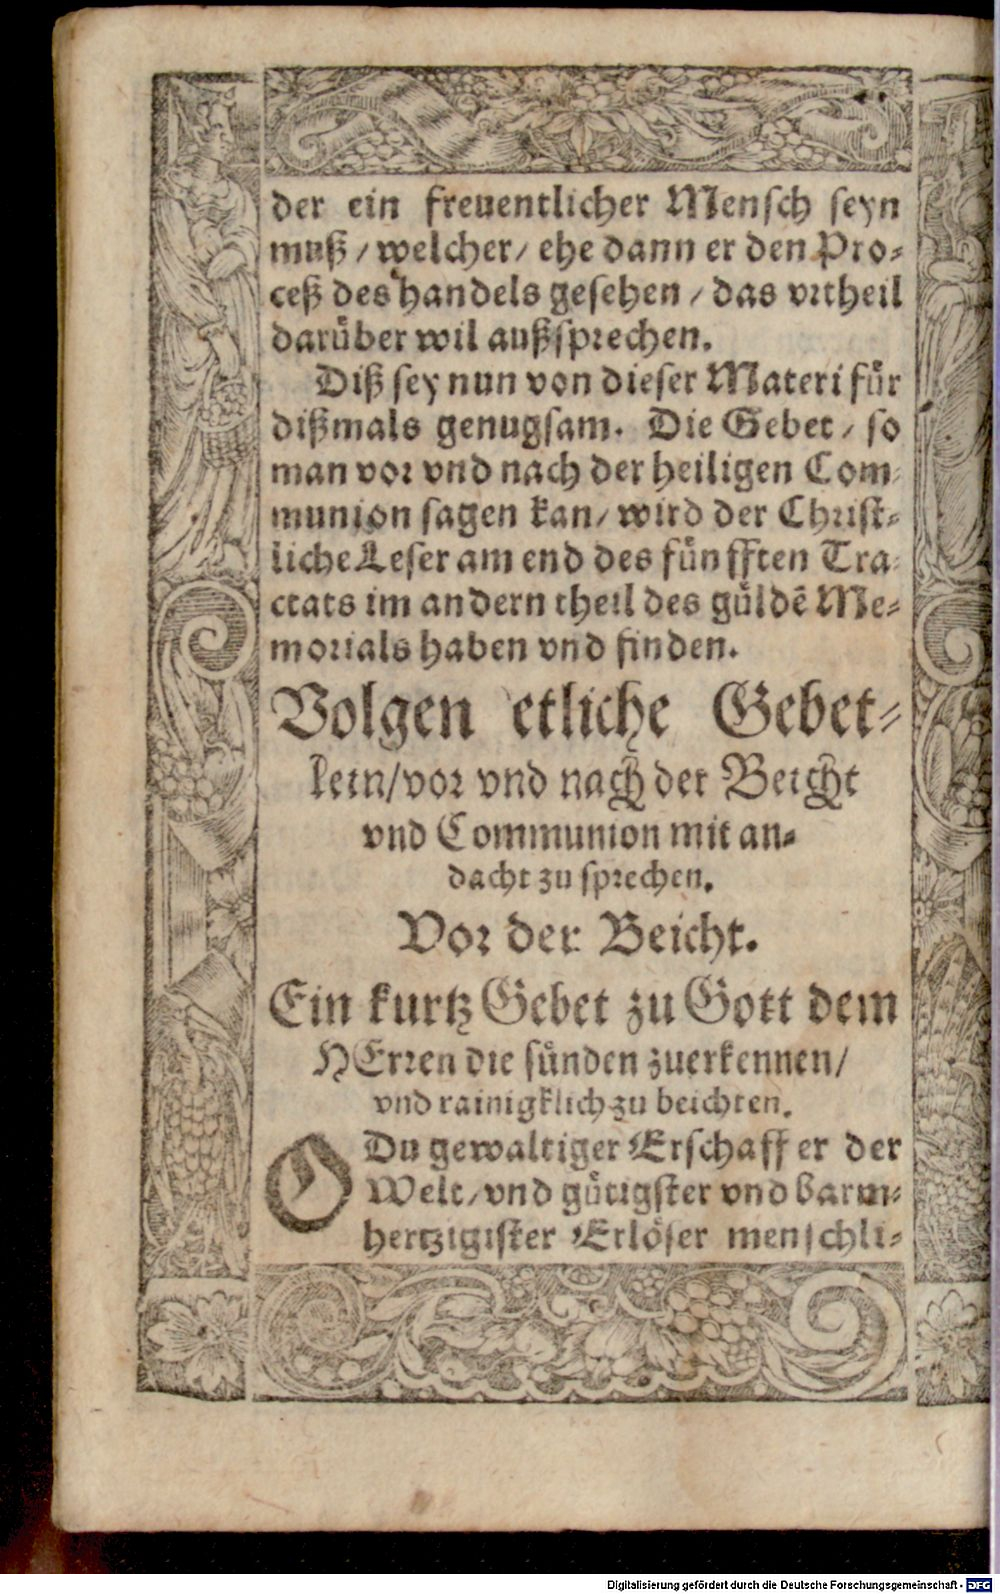 der ein freuentlicher Mensch seyn
muß / welcher / ehe dann er den Pro-
ceß des handels gesehen / das vrtheil
darüber wil außsprechen.
Diß sey nun von dieser Materi für
dißmals genugsam. Die Gebet / so
man vor vnd nach der heiligen Com-
munion sagen kan / wird der Christ-
liche Leser am end des fünfften Tra-
ctats im andern theil des güldē Me-
morials haben vnd finden.
Volgen etliche Gebet-
lein / vor vnd nach der Beicht
vnd Communion mit an-
dacht zu sprechen.
Vor der Beicht.
Ein kurtz Gebet zu Gott dem
HErren die sünden zuerkennen /
vnd rainigklich zu beichten.
O Du gewaltiger Erschaffer der
Welt / vnd gütigster vnd barm-
hertzigister Erlöser menschli-
Digitalisierung gefördert durch die Deutsche Forschungsgemeinschaft - DFG